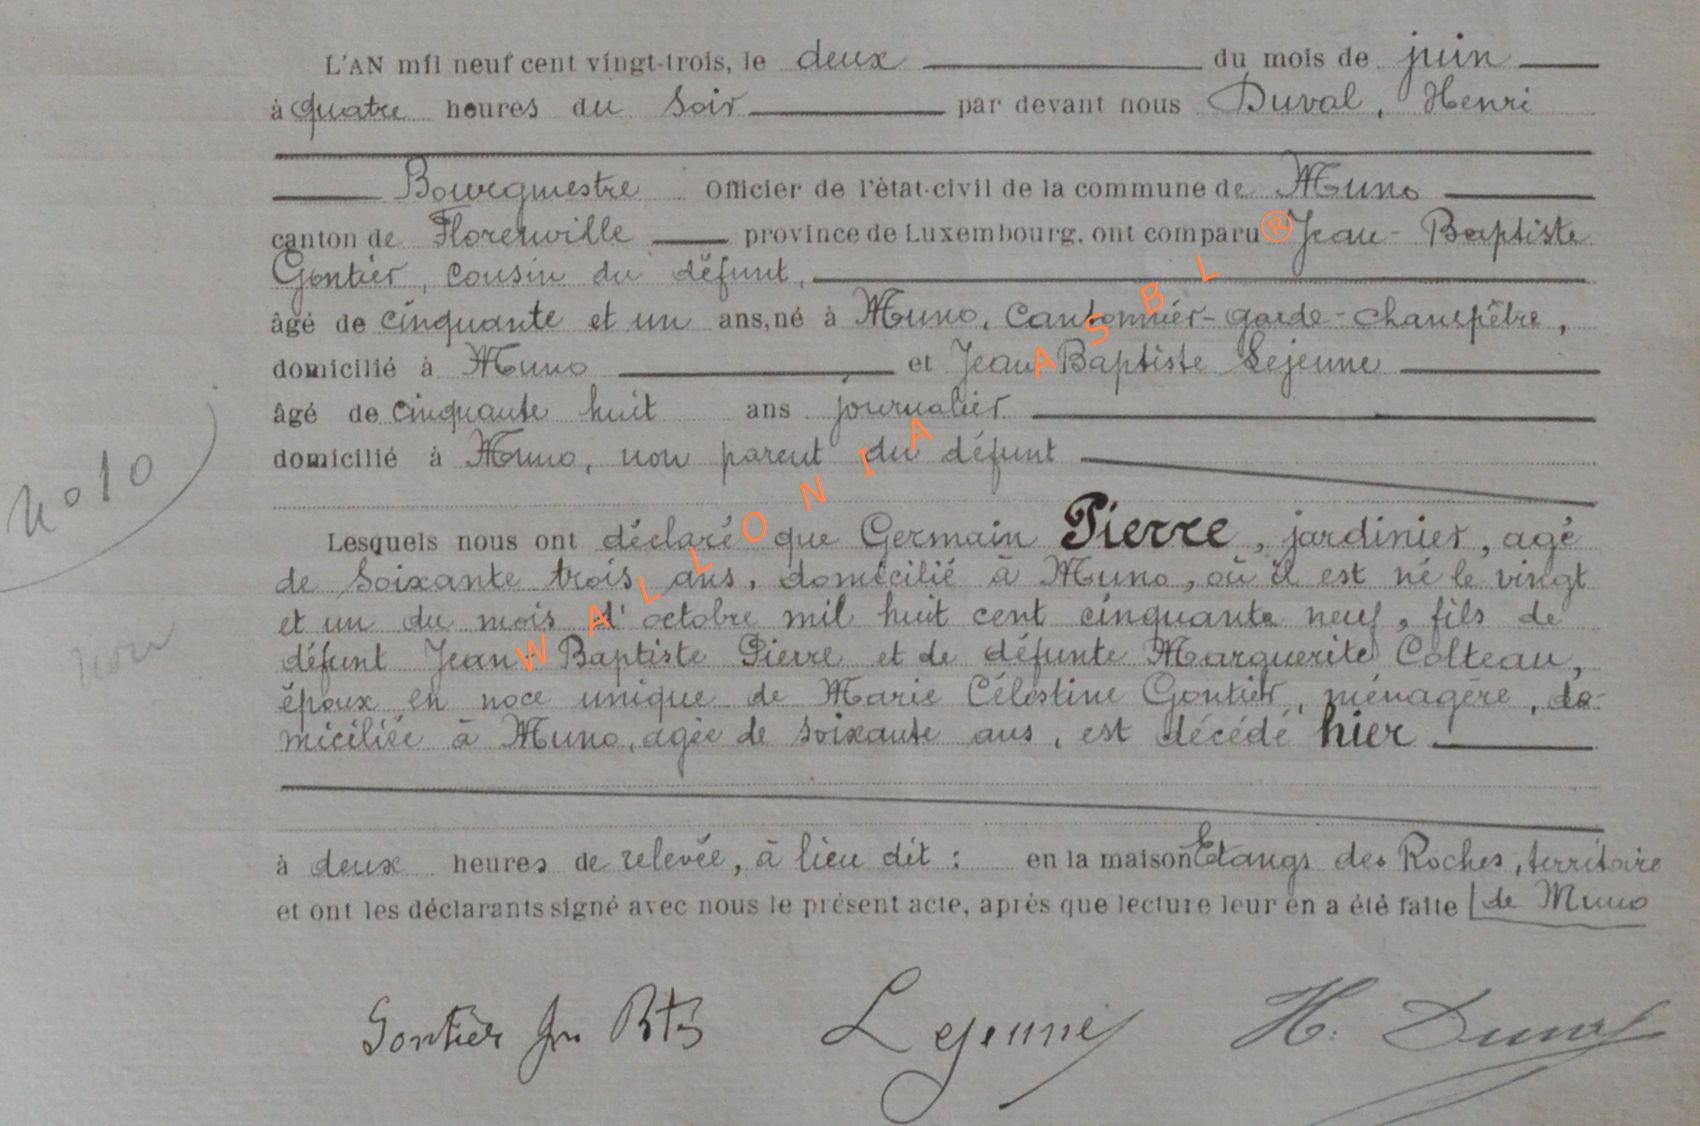 L'AN mil neuf cent vingt-trois, le deux du mois de juin
à quatre heures du soir par devant nous Duval, Henri
Bourgmestre Officier de l'état-civil de la commune de Muno
canton de Florenville province de Luxembourg, ont comparu Jean-Baptiste
Gontier, cousin du défunt,
âgé de cinquante et un ans, né à Muno, Cantonnier-garde-champêtre,
domicilié à Muno et Jean Baptiste Lejeune
âgé de cinquante huit ans journalier
domicilié à Muno, non parent du défunt
N° 10
Lesquels nous ont déclaré que Germain Pierre, jardinier, agé
de soixante trois ans, domicilié à Muno, où il est né le vingt
et un du mois d'octobre mil huit cent cinquante neuf, fils de
défunt Jean-Baptiste Pierre et de défunte Marguerite Colteau,
époux en noce unique de Marie Célestine Gontier, ménagère, do-
miciliée à Muno, agée de soixante ans, est décédé hier
à deux heures de relevée, à lieu dit : en la maison Etangs des Roches, territoire
et ont les déclarants signé avec nous le présent acte, après que lecture leur en a été faite de Muno
Gontier Jn Bte Lejeune H. Duval
WALLONIA ASBL ®